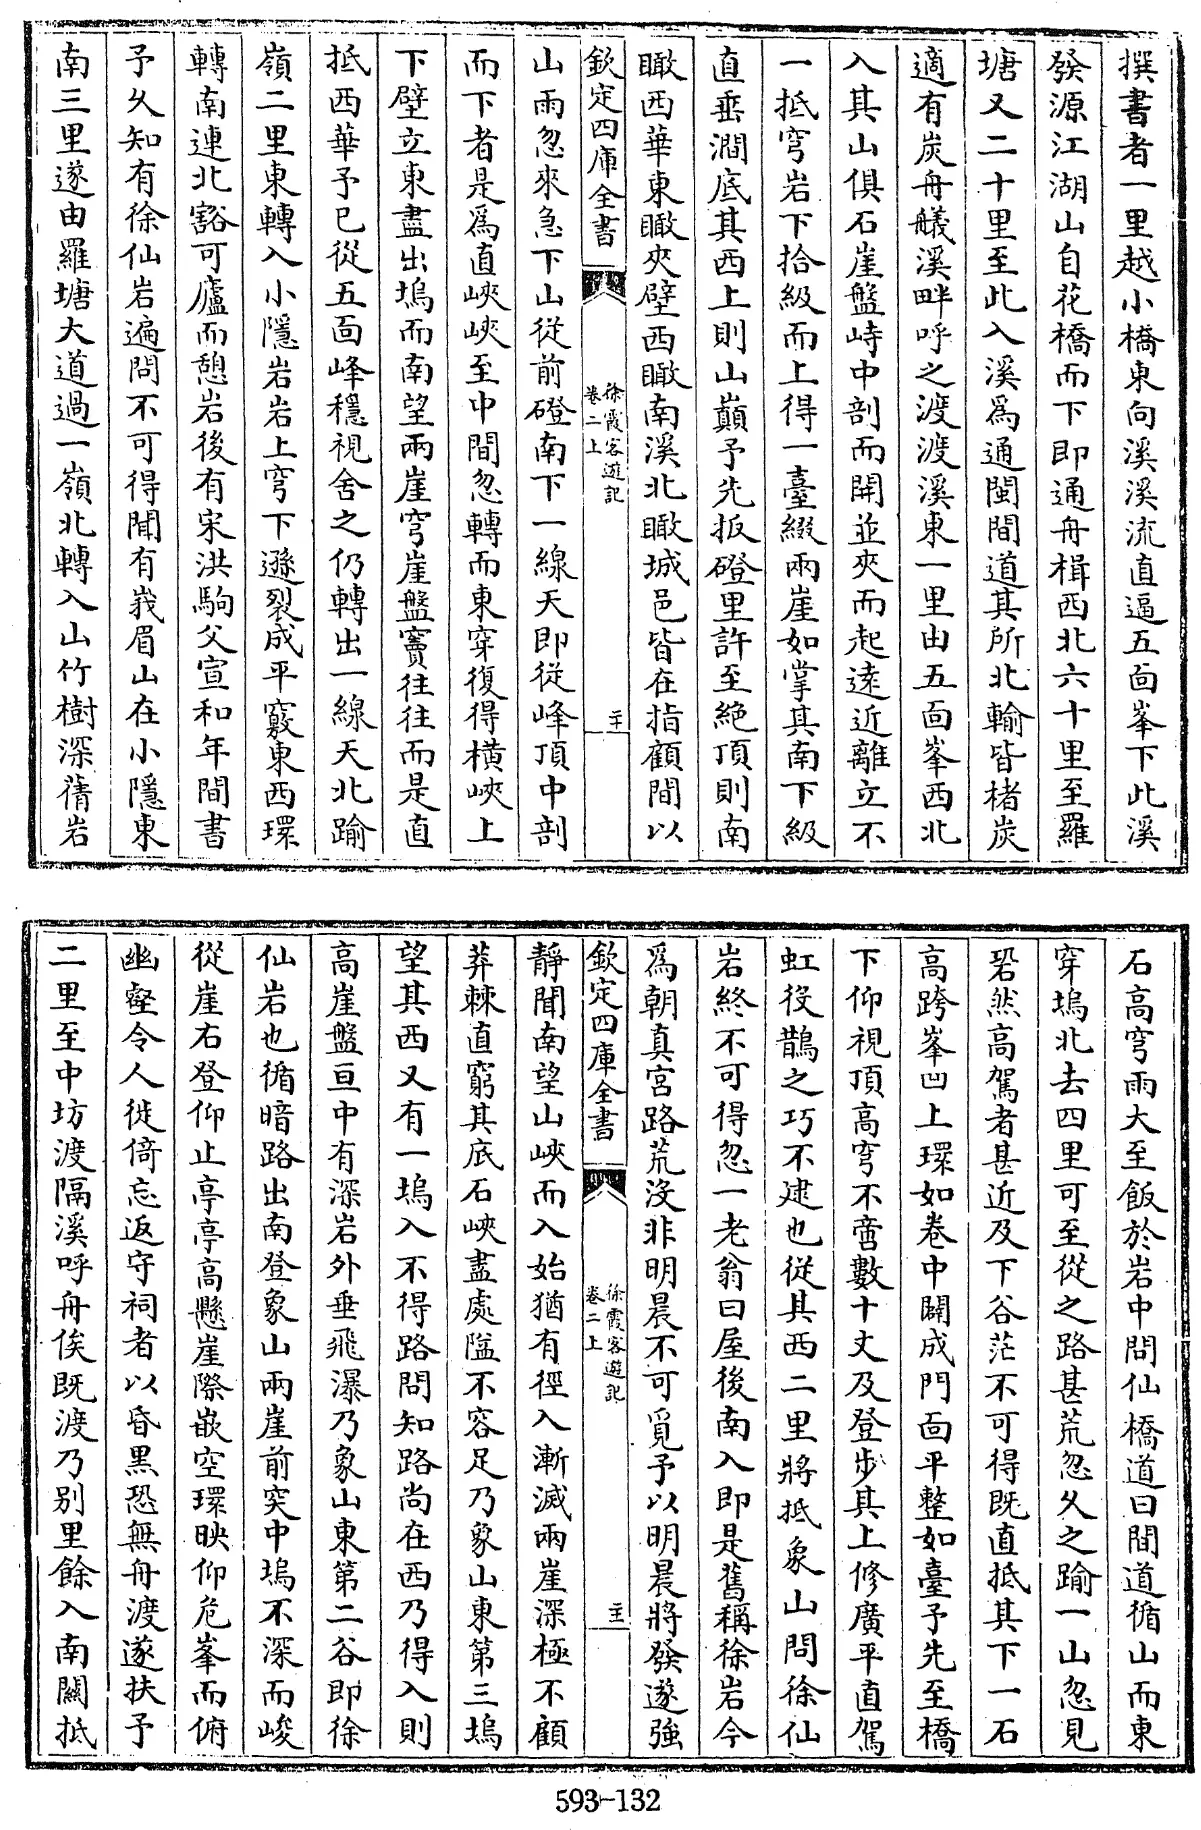 撰書者一里越小橋東向溪溪流直逼五面峯下此溪
發源江湖山自花橋而下即通舟楫西北六十里至羅
塘又二十里至此入溪爲通閩間道其所北輸皆楮炭
適有炭舟艤溪畔呼之渡渡溪東一里由五面峯西北
入其山俱石崖盤峙中剖而開並夾而起遠近離立不
一抵穹岩下拾級而上得一臺綴兩崖如掌其南下級
直垂澗底其西上則山巔予先扳磴里許至絶頂則南
瞰西華東瞰夾壁西瞰南溪北瞰城邑皆在指顧間以
欽定四庫全書
徐霞客遊記
卷二上
二十
山雨忽來急下山從前磴南下一線天即從峰頂中剖
而下者是爲直峽峽至中間忽轉而東穿復得橫峽上
下壁立東盡出塢而南望兩崖穹崖盤竇往往而是直
抵西華予已從五面峰穩視舍之仍轉出一線天北踰
嶺二里東轉入小隱岩岩上穹下遜裂成平竅東西環
轉南連北豁可廬而憩岩後有宋洪駒父宣和年間書
予久知有徐仙岩遍問不可得聞有峩眉山在小隱東
南三里遂由羅塘大道過一嶺北轉入山竹樹深蒨岩
石高穹雨大至飯於岩中問仙橋道曰間道循山而東
穿塢北去四里可至從之路甚荒忽久之踰一山忽見
砮然高駕者甚近及下谷茫不可得既直抵其下一石
高跨峯凹上環如卷中闢成門面平整如臺予先至橋
下仰視頂高穹不啻數十丈及登步其上修廣平直駕
虹役鵲之巧不逮也從其西二里將抵象山問徐仙
岩終不可得忽一老翁曰屋後南入即是舊稱徐岩今
爲朝真宮路荒沒非明晨不可覓予以明晨將發遂強
欽定四庫全書
徐霞客遊記
卷二上
二十一
靜聞南望山峽而入始猶有徑入漸滅兩崖深極不顧
莽棘直窮其底石峽盡處隘不容足乃象山東第三塢
望其西又有一塢入不得路問知路尚在西乃得入則
高崖盤亘中有深岩外垂飛瀑乃象山東第二谷即徐
仙岩也循暗路出南登象山兩崖前突中塢不深而峻
從崖右登仰止亭亭高懸崖際嵌空環映仰危峯而俯
幽壑令人徙倚忘返守祠者以昏黑恐無舟渡遂扶予
二里至中坊渡隔溪呼舟俟既渡乃别里餘入南關抵
593-132